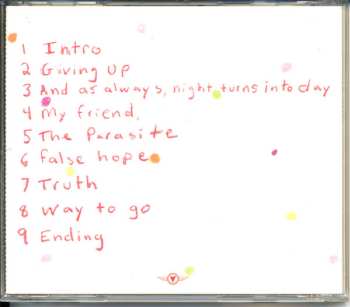 1 Intro
2 Giving up
3 And as always, night turns into day
4 My friend.
5 The Parasite
6 False hope
7 Truth
8 Way to go
9 Ending